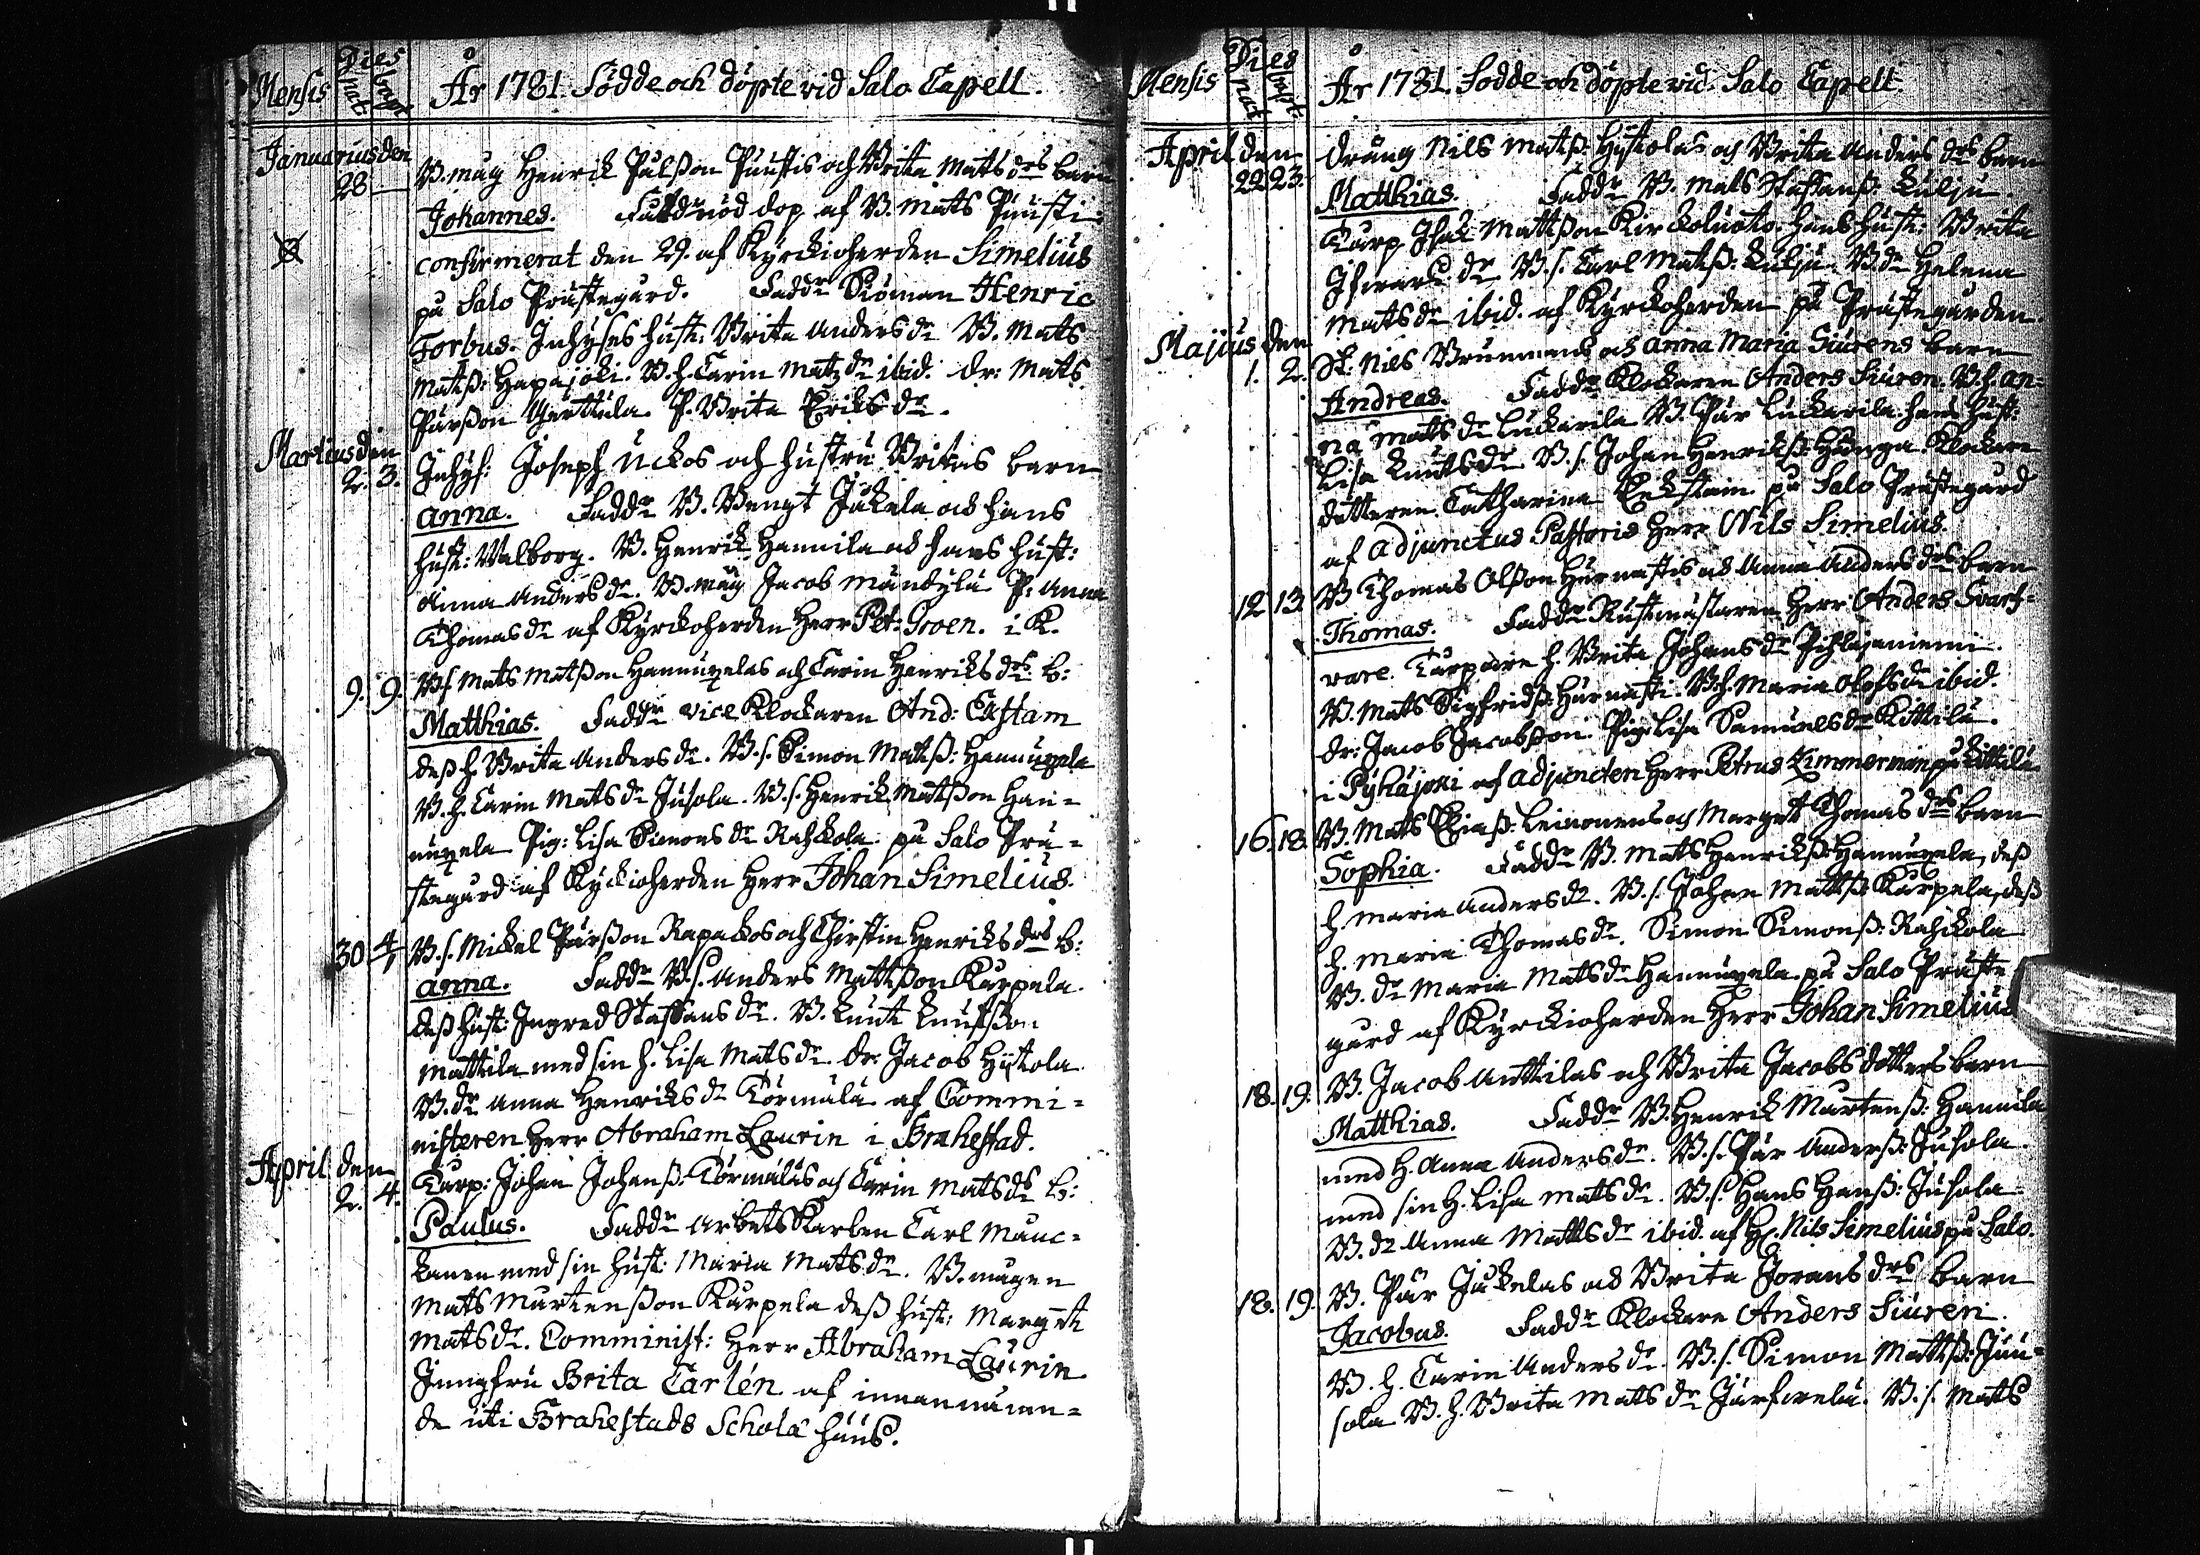 Mensis Dies nat. bapt. År 1781. Födde och döpte vid Salo Capell.
Januarius den
28 B. måg Henrich Pålsson Puustis och Brita Mats drs barn
Johannes. Faddr nöd dop af B. Mats Puusti
confirmerat den 29. af Kyrckioherden Simelius
på Salo Prästegård. Faddr Siöman Henric
Forbus. Inhyses hust: Brita Anders dr B. Mats
Matss: Hapajoki. B. h. Carin Matz dr ibid. dr: Mats
Pärsson Yerttula. P. Brita Eriks dr.
Martius den
2. 3. Inhys: Joseph Uckos och hustru Britas barn
Anna. Faddr B. Bengt Jukela och hans
hust: Walborg. B. Henrik Hannila och hans hust:
Anna Anders dr. B. måg Jacob Mäntylä P: Anna
Thomas dr af Kyrckoherden Herr Pet: Croen. i K.
9. 9. B.s. Mats Matsson Hannuxelas och Carin Henriks drs b:
Matthias. Faddr vice Klockaren And: Eckstam
dess h. Brita Anders dr. B.s. Simon Matss: Hannuxela
B. h. Carin Mats dr Jusola. B.s. Henrik Matsson Han-
nuxela Pig: Lisa Simons dr Rahkola på Salo Prä-
stegård af Kyckioherden Herr Johan Simelius.
30 4/1 B.s. Mickel Pärsson Rapakos och Christin Henriks drs b:
Anna. Faddr B.s. Anders Mattsson Karpela
dess hust: Ingred Staffans dr. B. Knut Knutsson
Mattila med sin h. Lisa Mats dr dr: Jacob Hÿtola
B. dr Anna Henriks dr Törmälä af Commi-
nisteren Herr Abraham Laurin i Brahestad.
April den
2. 4. Torp: Johan Johanss: Törmäläs och Carin Mats drs b:
Paulus. Faddr Arbets Karlen Carl Manc-
kanen med sin hust: Maria Mats dr. B. mågen
Mats Mårtensson Karpela dess hust: Marget
Mats dr. Comminist: Herr Abraham Laurin
Jungfru Brita Carlén af innannämn-
de uti Brahestads Schola huus.
Mensis Dies nat bapt: År 1781. Födde och döpte vid Salo Capell.
April den
22. 23. Dräng Nils Matss: Hÿtolas och Brita Anders drs barn
Matthias. Faddr B. Mats Staffanss: Kulju
Torp. Isak Mattsson Kirckoluoto. hans hust: Brita
Isaacs dr B.s. Carl Matss: Kulju. B. dr Helena
Mats dr ibid. af Kyrckoherden på Prästegården.
Majius den
1. 2. Sk: Nils Brunnens och Anna Maria Siurens barn
Andreas. Faddr Klockaren Anders Siuren. B.h. An-
na Mats dr Luckarila B. Pär Luckarila hans hust:
Lisa Knuts dr B.s. Johan Henrikss: Honga. Klockare
dotteren Catharina Eckstain på Salo Prästegård
af Adjunctus Pastoris Herr Nils Simelius.
12 13. B Thomas Olsson Hurnastis och Anna Anders drs barn
Thomas. Faddr Rustmästaren Herr Anders Svarf-
vare. Torpare h. Brita Johans dr Pihlajaniemi.
B. Mats Sigfridss: Hurnasti. B.h. Maria Olofs dr ibid.
dr: Jacob Jacobsson. Pig: Lisa Samuels dr Kittilä.
i Pyhäjoki af Adjuncten Herr Petrus Zimmerman på Kittilä
16. 18. B. Mats Eliass: Leinonens och Marget Thomas drs barn
Sophia. Faddr B. Mats Henrikss: Hannuxela, dess
h. Maria Anders dr. B.s. Johan Mattss: Karpela, dess
h. Maria Thomas dr. Simon Simonss: Rahkola
B. dr Maria Mats dr Hannuxela på Salo Präste
gård af Kyrckioherden Herr Johan Simelius
18. 19. B. Jacob Anttilas och Brita Jacobs dotters barn
Matthias. Faddr B. Henrik Mårtenss: Hannila
med h. Anna Anders dr. B.s. Pär Anderss: Jusola
med sin h. Lisa Mats dr. B.s. Hans Hanss: Jusola
B. dr Anna Matts dr ibid. af H. Nils Simelius på Salo.
18. 19. B. Pär Jukelas och Brita Jorans drs barn
Jacobus. Faddr Klockare Anders Siuren.
B. h. Carin Anders dr. B.s. Simon Mattss: Juu-
sola B. h. Brita Mats dr Järfwelä. B.s. Mats